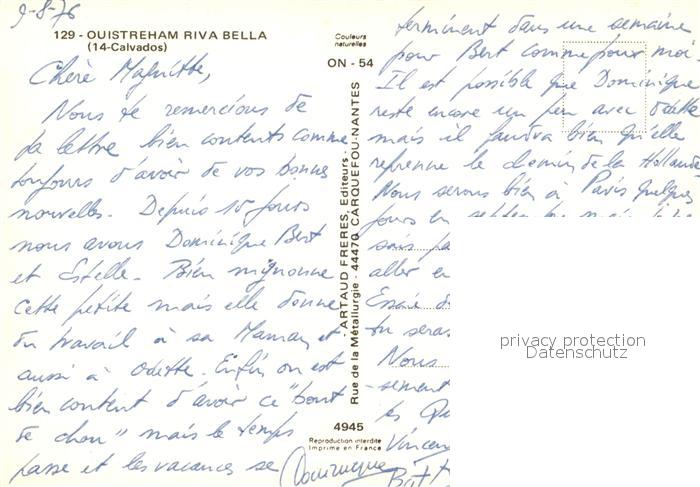 9-8-76
129 - OUISTREHAM RIVA BELLA
(14-Calvados)
Couleurs
naturelles
ON - 54
Chère
Nous te remercions de
ta lettre bien contents comme
toujours d'avoir de vos bonnes
nouvelles. Depuis 15 jours
nous avons Dominique Bert
et Estelle. Bien mignonne
cette petite mais elle donne
du travail à sa Maman et
aussi à Odette. Enfin on est
bien content d'avoir ce "bout
de chou" mais le temps
passe et les vacances se
terminent dans une semaine
pour Bert comme pour moi.
Il est possible que Dominique
reste encore un peu avec
mais il faudra bien qu'elle
reprenne le chemin de la Hollande
Nous serons bien à Paris quelques
jours en
sais pa
aller en
Essaie d
tu seras
Nous
sement
les Qu
Vincen
Dominique
ARTAUD FRERES, Editeurs -
Rue de la Métallurgie - 44470 CARQUEFOU-NANTES
4945
Reproduction interdite
Imprimé en France
privacy protection
Datenschutz